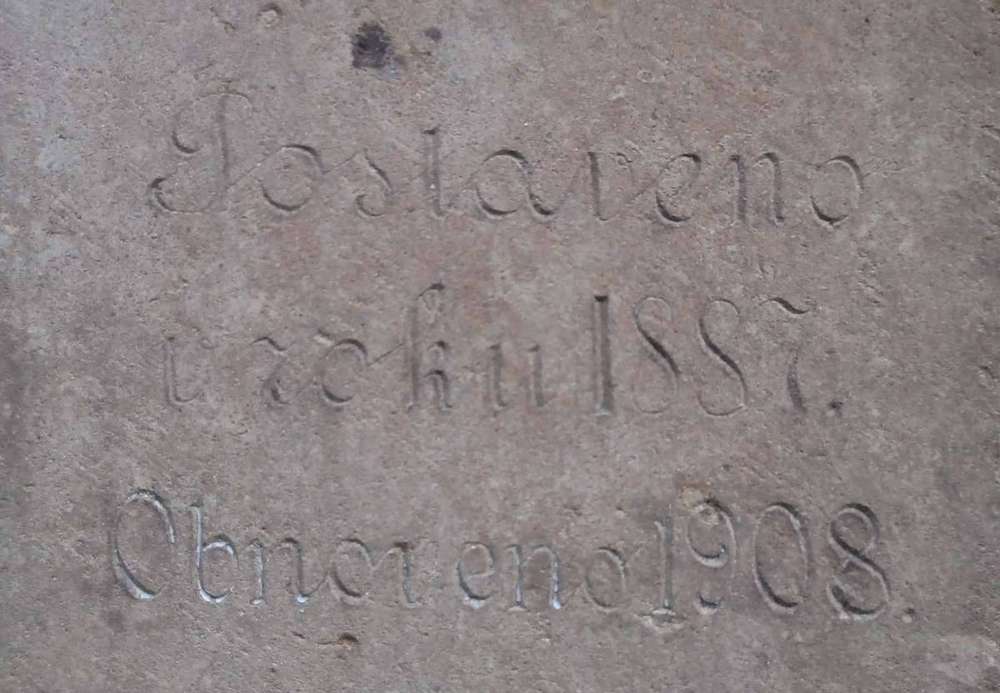 Postaveno
v roku 1887.
Obnoveno 1908.